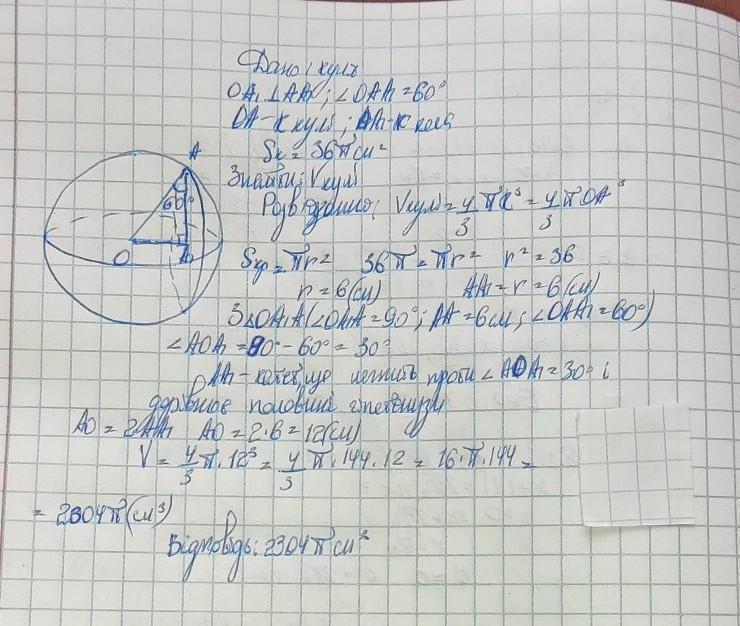 Дано: куля
OA₁ ⊥ AA₁; ∠OAA₁ = 60°
OA - R кулі; AA₁ - r кола
Sк = 36π см²
Знайти: Vкулі
Розв'язання: Vкулі = 4/3 πR³ = 4/3 π OA³
A
60°
O
Sкр = πr² 36π = πr² r² = 36
r = 6 (см) AA₁ = r = 6 (см)
З △OA₁A (∠OA₁A = 90°; AA₁ = 6 см; ∠OAA₁ = 60°)
∠AOA₁ = 90° - 60° = 30°
AA₁ - катет, що лежить проти ∠AOA₁ = 30° і
дорівнює половині гіпотенузи
AO = 2AA₁ AO = 2·6 = 12 (см)
V = 4/3 π · 12³ = 4/3 π · 144 · 12 = 16 · π · 144 =
= 2304π (см³)
Відповідь: 2304π см³